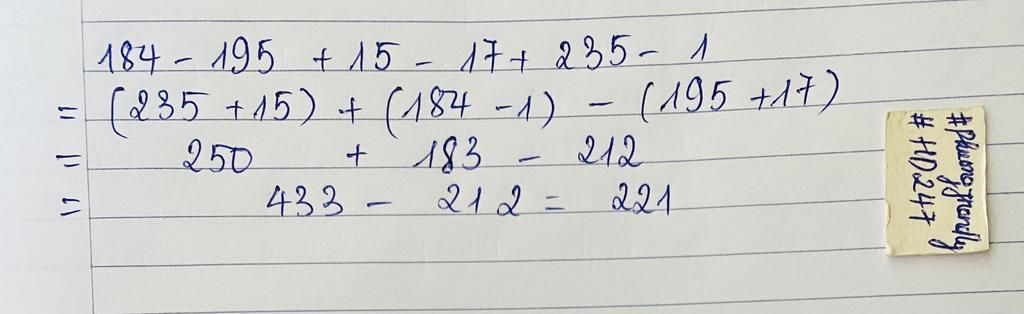 184 - 195 + 15 - 17 + 235 - 1
= (235 + 15) + (184 - 1) - (195 + 17)
= 250 + 183 - 212
= 433 - 212 = 221
# HD247